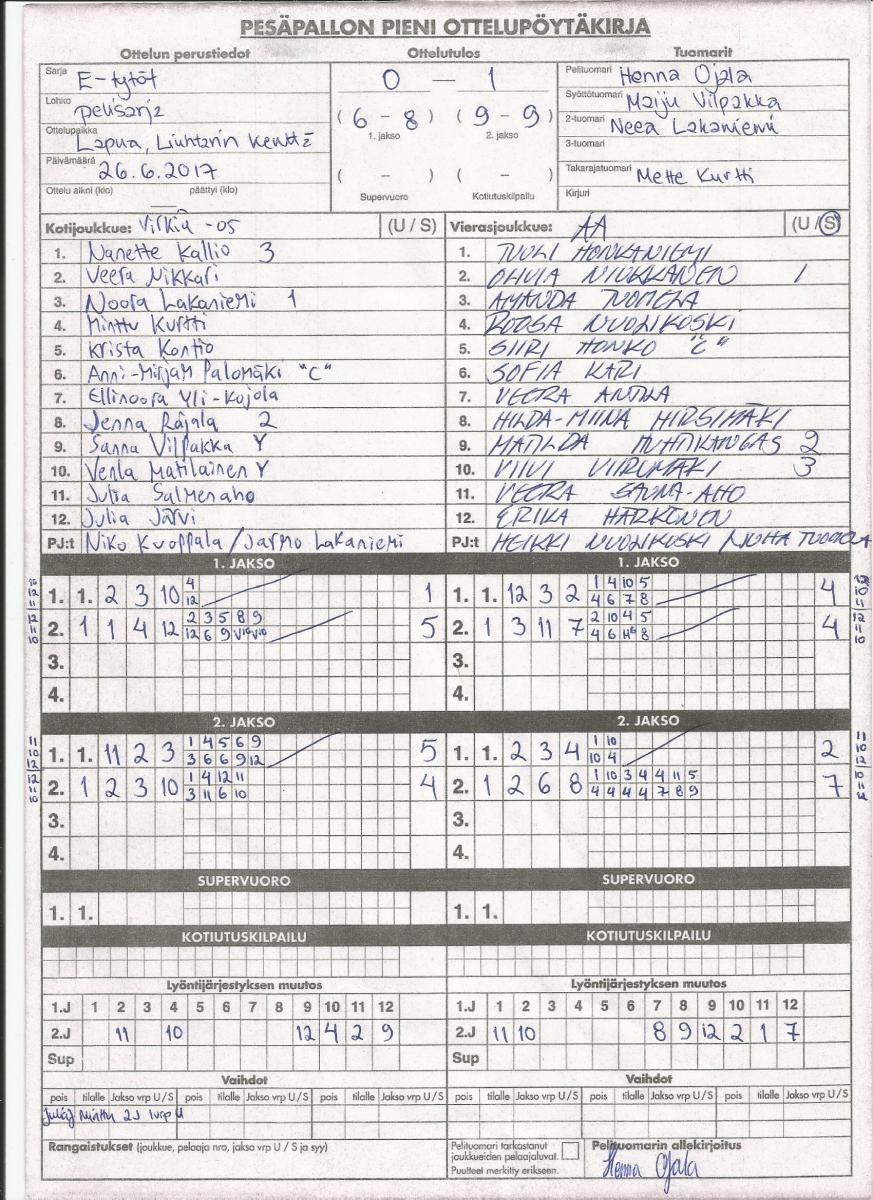 PESÄPALLON PIENI OTTELUPÖYTÄKIRJA
Ottelun perustiedot Ottelutulos Tuomarit
Sarja E-tytöt
Lohko pelisarja
Ottelupaikka Lapua, Liuhtarin kenttä
Päivämäärä 26.6.2017
Ottelu alkoi (klo) päättyi (klo)
0 — 1
( 6 - 8 ) ( 9 - 9 )
1. jakso 2. jakso
( - ) ( - )
Supervuoro Kotiutuskilpailu
Pelituomari Henna Ojala
Syöttötuomari Maiju Vilpakka
2-tuomari Neea Lakaniemi
3-tuomari
Takarajatuomari Mette Kurtti
Kirjuri
Kotijoukkue: Virkiä -05 (U / S)
1. Nanette Kallio 3
2. Veera Nikkari
3. Noora Lakaniemi 1
4. Minttu Kurtti
5. Krista Kontio
6. Anni-Mirjam Palomäki "C"
7. Ellinoora Yli-Kojola
8. Jenna Rajala 2
9. Sanna Vilpakka Y
10. Venla Matilainen Y
11. Julia Salmenaho
12. Julia Järvi
PJ:t Niko Kuoppala / Jarmo Lakaniemi
Vierasjoukkue: AA (U / S)
1. TUULI HONKANIEMI
2. OLIVIA NIUKKANEN 1
3. AMANDA TUOMELA
4. ROOSA NUOLIKOSKI
5. SIIRI HONKO "C"
6. SOFIA KARI
7. VEERA ANTILA
8. HILDA-MIINA HIRSIMÄKI
9. MATILDA HUHTKANGAS 2
10. VIIVI VIIRUMÄKI 3
11. VEERA SAUNA-AHO
12. ERIKA HÄRKÖNEN
PJ:t HEIKKI NUOLIKOSKI / JUHA TUOMELA
1. JAKSO 1. JAKSO
10 12 11
1. 1. 2 3 10 4 1
12
12 11 10
2. 1 1 4 12 2 3 5 8 9 5
12 6 9 V10 V10
3.
4.
1. 1. 12 3 2 1 4 10 5 4
4 6 7 8
2. 1 3 11 7 2 10 4 5 4
4 6 8
12 11 10
3.
4.
2. JAKSO 2. JAKSO
11 10 12
1. 1. 11 2 3 1 4 5 6 9 5
3 6 6 9 12
12 11 10
2. 1 2 3 10 1 4 12 11 4
3 11 6 10
3.
4.
1. 1. 2 3 4 1 10 2
10 4
2. 1 2 6 8 1 10 3 4 4 11 5 7
4 4 4 4 7 8 9
3.
4.
SUPERVUORO SUPERVUORO
1. 1. 1. 1.
KOTIUTUSKILPAILU KOTIUTUSKILPAILU
Lyöntijärjestyksen muutos Lyöntijärjestyksen muutos
1.J 1 2 3 4 5 6 7 8 9 10 11 12
2.J 11 10 12 4 2 9
Sup
1.J 1 2 3 4 5 6 7 8 9 10 11 12
2.J 11 10 8 9 12 2 1 7
Sup
Vaihdot Vaihdot
pois tilalle Jakso vrp U / S pois tilalle Jakso vrp U / S pois tilalle Jakso vrp U / S
JuliaJ Minttu 2J 1vrp U
pois tilalle Jakso vrp U / S pois tilalle Jakso vrp U / S pois tilalle Jakso vrp U / S
Rangaistukset (joukkue, pelaaja nro, jakso vrp U / S ja syy)
Pelituomari tarkastanut
joukkueiden pelaajaluvat.
Puutteet merkitty erikseen.
Pelituomarin allekirjoitus
Henna Ojala